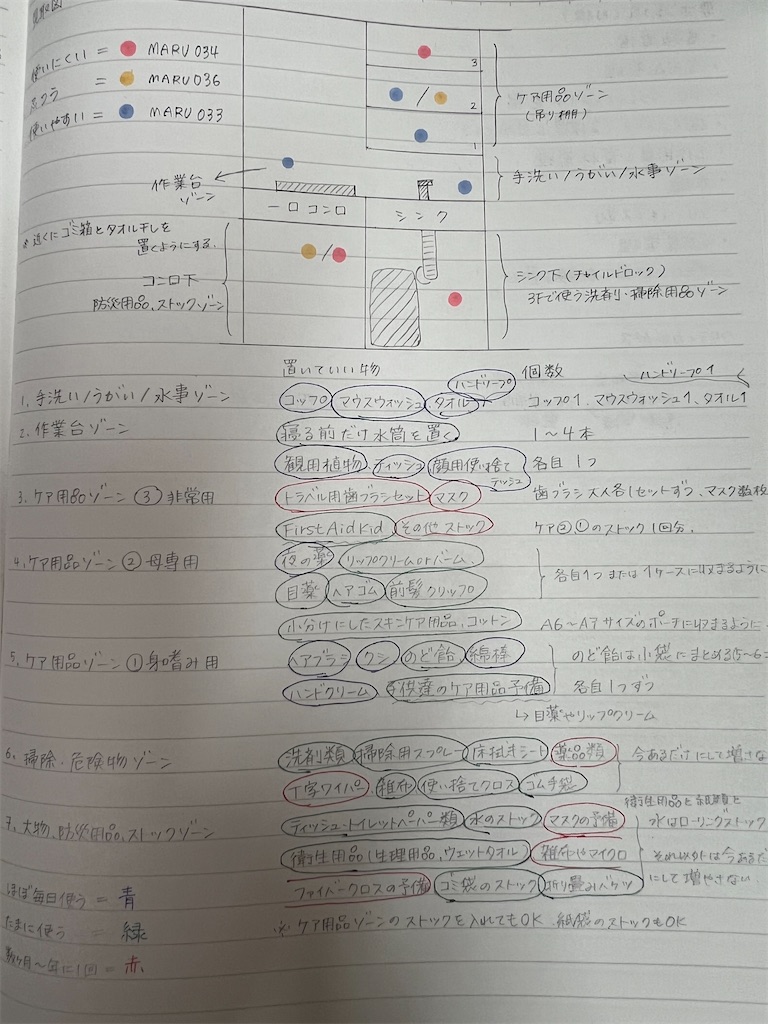 見取図
使いにくい = MARU 034
ふつう = MARU 036
使いやすい = MARU 033
3
/ 2
1
ケア用品ゾーン
(吊り棚)
作業台
ゾーン
手洗い/うがい/水事ゾーン
一口コンロ
シンク
※近くにゴミ箱とタオル干しを
置くようにする.
コンロ下
防災用品、ストックゾーン
/
シンク下(チャイルドロック)
3Fで使う洗剤・掃除用品ゾーン
置いていい物 個数
ハンドソープ ハンドソープ1
1, 手洗い/うがい/水事ゾーン コップ マウスウォッシュ タオル コップ1、マウスウォッシュ1、タオル1
2. 作業台ゾーン 寝る前だけ水筒を置く 1〜4本
観用植物 ティッシュ 顔用使い捨てティッシュ 各自1つ
3. ケア用品ゾーン③非常用 トラベル用歯ブラシセット マスク 歯ブラシ大人各1セットずつ、マスク数枚
First Aid Kid その他ストック ケア②①のストック1回分.
4. ケア用品ゾーン②母専用 夜の薬 リップクリームorバーム
各自1つまたは1ケースに収まるように
目薬 ヘアゴム 前髪クリップ
小分けにしたスキンケア用品、コットン A6〜A7サイズのポーチに収まるように.
5. ケア用品ゾーン①身嗜み用 ヘアブラシ クシ のど飴 綿棒 のど飴は小袋にまとめる(5〜6コ
ハンドクリーム 子供達のケア用品予備 各自1つずつ
↳目薬やリップクリーム
6. 掃除・危険物ゾーン 洗剤類 掃除用スプレー 床拭きシート 薬品類 今あるだけにして増さな
T字ワイパー 雑布 使い捨てクロス ゴム手袋
衛生用品と紙類と
7. 大物、防災用品、ストックゾーン ティッシュ・トイレットペーパー類 水のストック マスクの予備 水はローリングストック
衛生用品(生理用品、ウェットタオル) 雑布やマイクロ それ以外は今あるだ
ファイバークロスの予備 ゴミ袋のストック 折り畳みバケツ にして増やさない.
ほぼ毎日使う = 青
※ケア用品ゾーンのストックを入れてもOK 紙袋のストックもOK
たまに使う = 緑
数ヶ月〜年に1回 = 赤